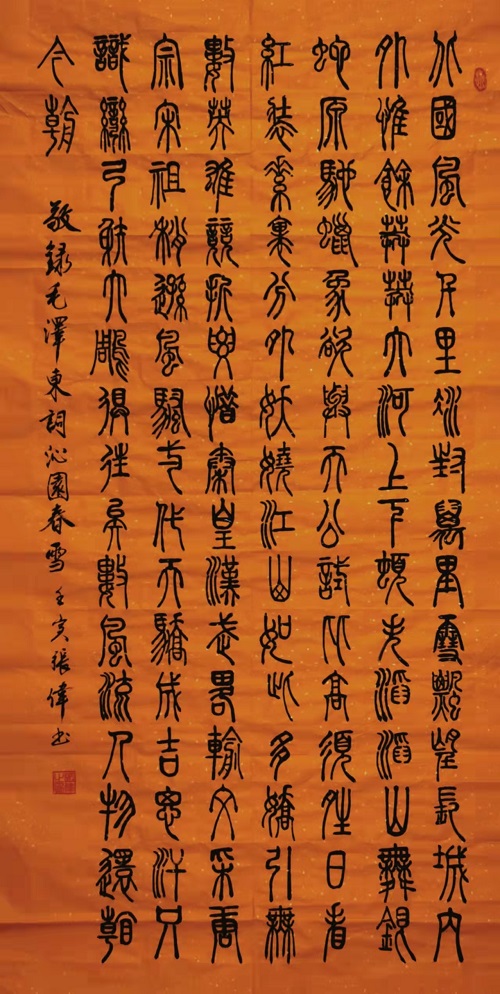 北國風光千里冰封萬里雪飄望長城內
外惟餘莽莽大河上下頓失滔滔山舞銀
蛇原馳蠟象欲與天公試比高須晴日看
紅裝素裹分外妖嬈江山如此多嬌引無
數英雄競折腰惜秦皇漢武略輸文采唐
宗宋祖稍遜風騷一代天驕成吉思汗只
識彎弓射大雕俱往矣數風流人物還看
今朝
敬錄毛澤東詞沁園春雪 壬寅張偉书